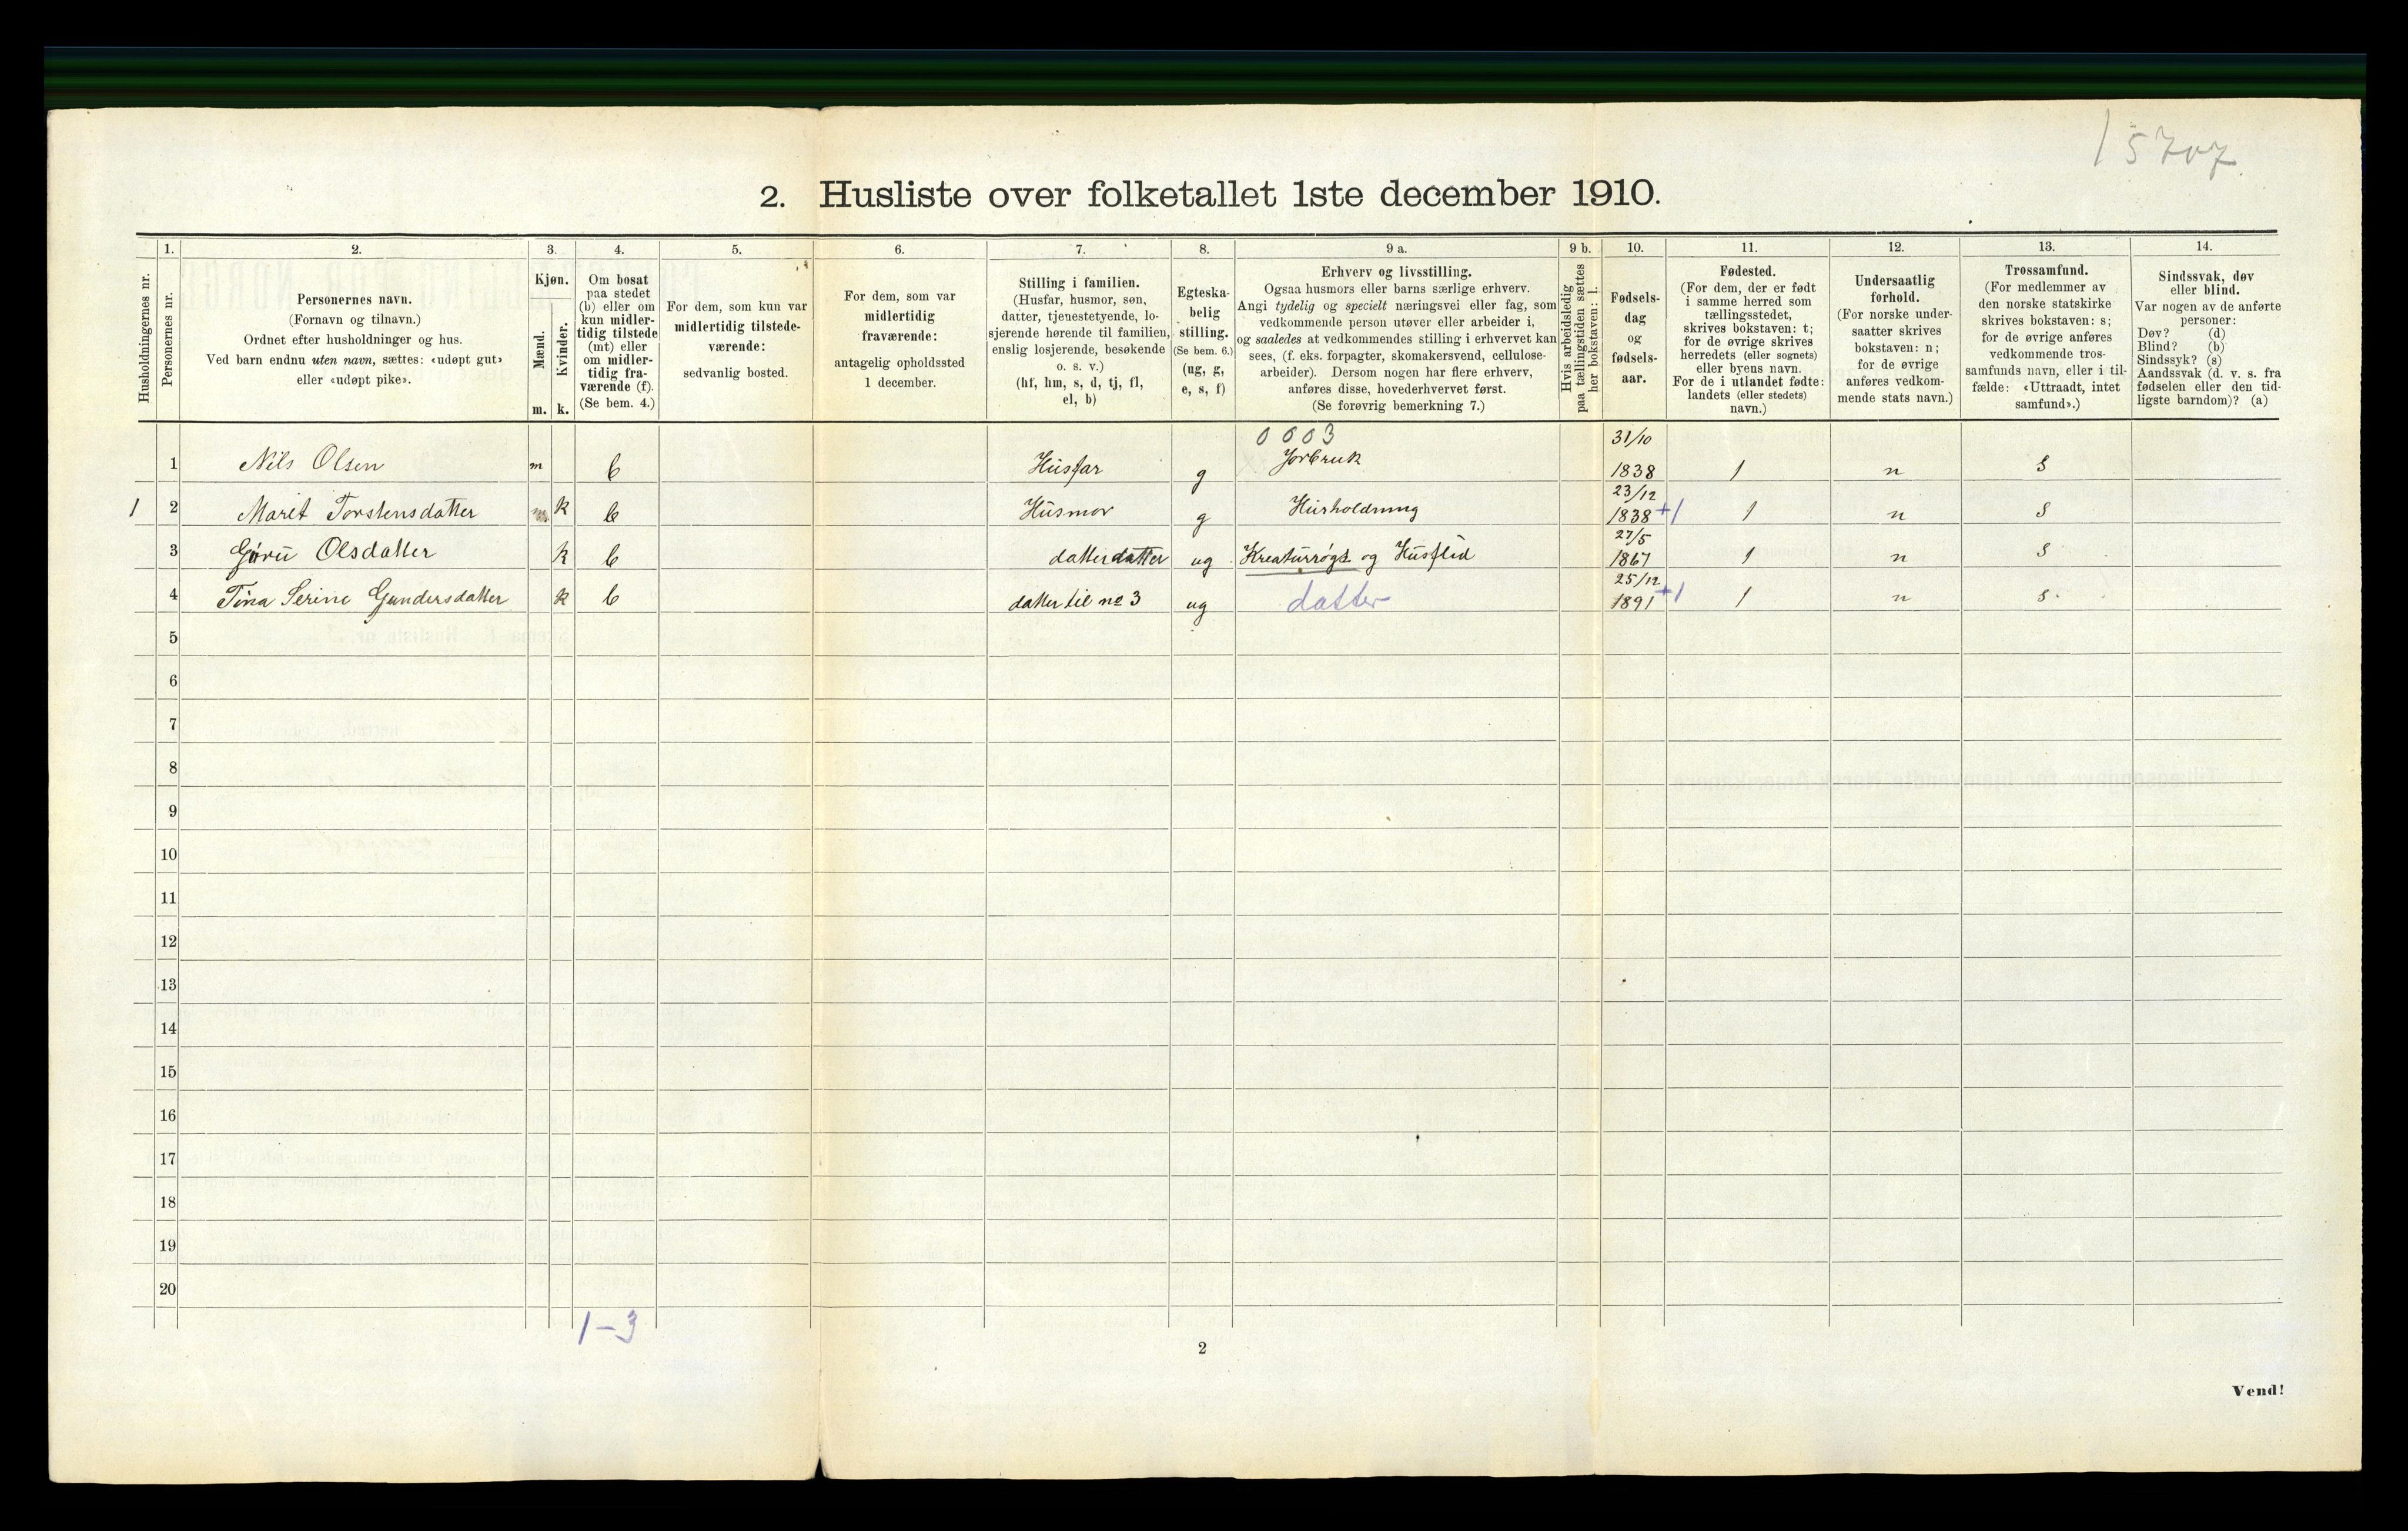 15707
2. Husliste over folketallet 1ste december 1910.
Husholdningernes nr.
1.
Personernes nr.
2.
Personernes navn.
(Fornavn og tilnavn.)
Ordnet efter husholdninger og hus.
Ved barn endnu uten navn, sættes: «udøpt gut»
eller «udøpt pike».
3.
Kjøn.
Mænd.
Kvinder.
m. k.
4.
Om bosat
paa stedet
(b) eller om
kun midler-
tidig tilstede
(mt) eller
om midler-
tidig fra-
værende (f).
(Se bem. 4.)
5.
For dem, som kun var
midlertidig tilstede-
værende:
sedvanlig bosted.
6.
For dem, som var
midlertidig
fraværende:
antagelig opholdssted
1 december.
7.
Stilling i familien.
(Husfar, husmor, søn,
datter, tjenestetyende, lo-
sjerende hørende til familien,
enslig losjerende, besøkende
o. s. v.)
(hf, hm, s, d, tj, fl,
el, b)
8.
Egteska-
belig
stilling.
(Se bem. 6.)
(ug, g,
e, s, f)
9 a.
Erhverv og livsstilling.
Ogsaa husmors eller barns særlige erhverv.
Angi tydelig og specielt næringsvei eller fag, som
vedkommende person utøver eller arbeider i,
og saaledes at vedkommendes stilling i erhvervet kan
sees, (f. eks. forpagter, skomakersvend, cellulose-
arbeider). Dersom nogen har flere erhverv,
anføres disse, hovederhvervet først.
(Se forøvrig bemerkning 7.)
9 b.
Hvis arbeidsledig
paa tællingstiden sættes
her bokstaven: l.
10.
Fødsels-
dag
og
fødsels-
aar.
11.
Fødested.
(For dem, der er født
i samme herred som
tællingsstedet,
skrives bokstaven: t;
for de øvrige skrives
herredets (eller sognets)
eller byens navn.
For de i utlandet fødte:
landets (eller stedets)
navn.)
12.
Undersaatlig
forhold.
(For norske under-
saatter skrives
bokstaven: n;
for de øvrige
anføres vedkom-
mende stats navn.)
13.
Trossamfund.
(For medlemmer av
den norske statskirke
skrives bokstaven: s;
for de øvrige anføres
vedkommende tros-
samfunds navn, eller i til-
fælde: «Uttraadt, intet
samfund».)
14.
Sindssvak, døv
eller blind.
Var nogen av de anførte
personer:
Døv? (d)
Blind? (b)
Sindssyk? (s)
Aandssvak (d. v. s. fra
fødselen eller den tid-
ligste barndom)? (a)
0003 31/10
1 Nils Olsen m b Husfar g Jorbruk 1838 1 n S
23/12
1 2 Marit Torstensdatter k b Husmor g Husholdning 1838 +1 1 n S
27/5
3 Guru Olsdatter k b datterdatter ug Kreaturrøgt og Husflid 1867 1 n S
25/12
4 Tina Serine Gundersdatter k b datter til no 3 ug datter 1891 +1 1 n S
5
6
7
8
9
10
11
12
13
14
15
16
17
18
19
20
1-3
2
Vend!